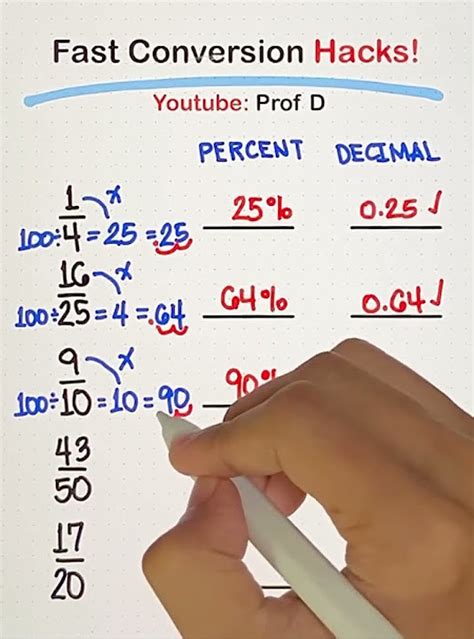 Fast Conversion Hacks!
Youtube: Prof D
PERCENT DECIMAL
1/4 x
100÷4 = 25 = .25 25% 0.25 ✓
16/25 x
100÷25 = 4 = .64 64% 0.64 ✓
9/10 x
100÷10 = 10 = 90 90%
43/50
17/20